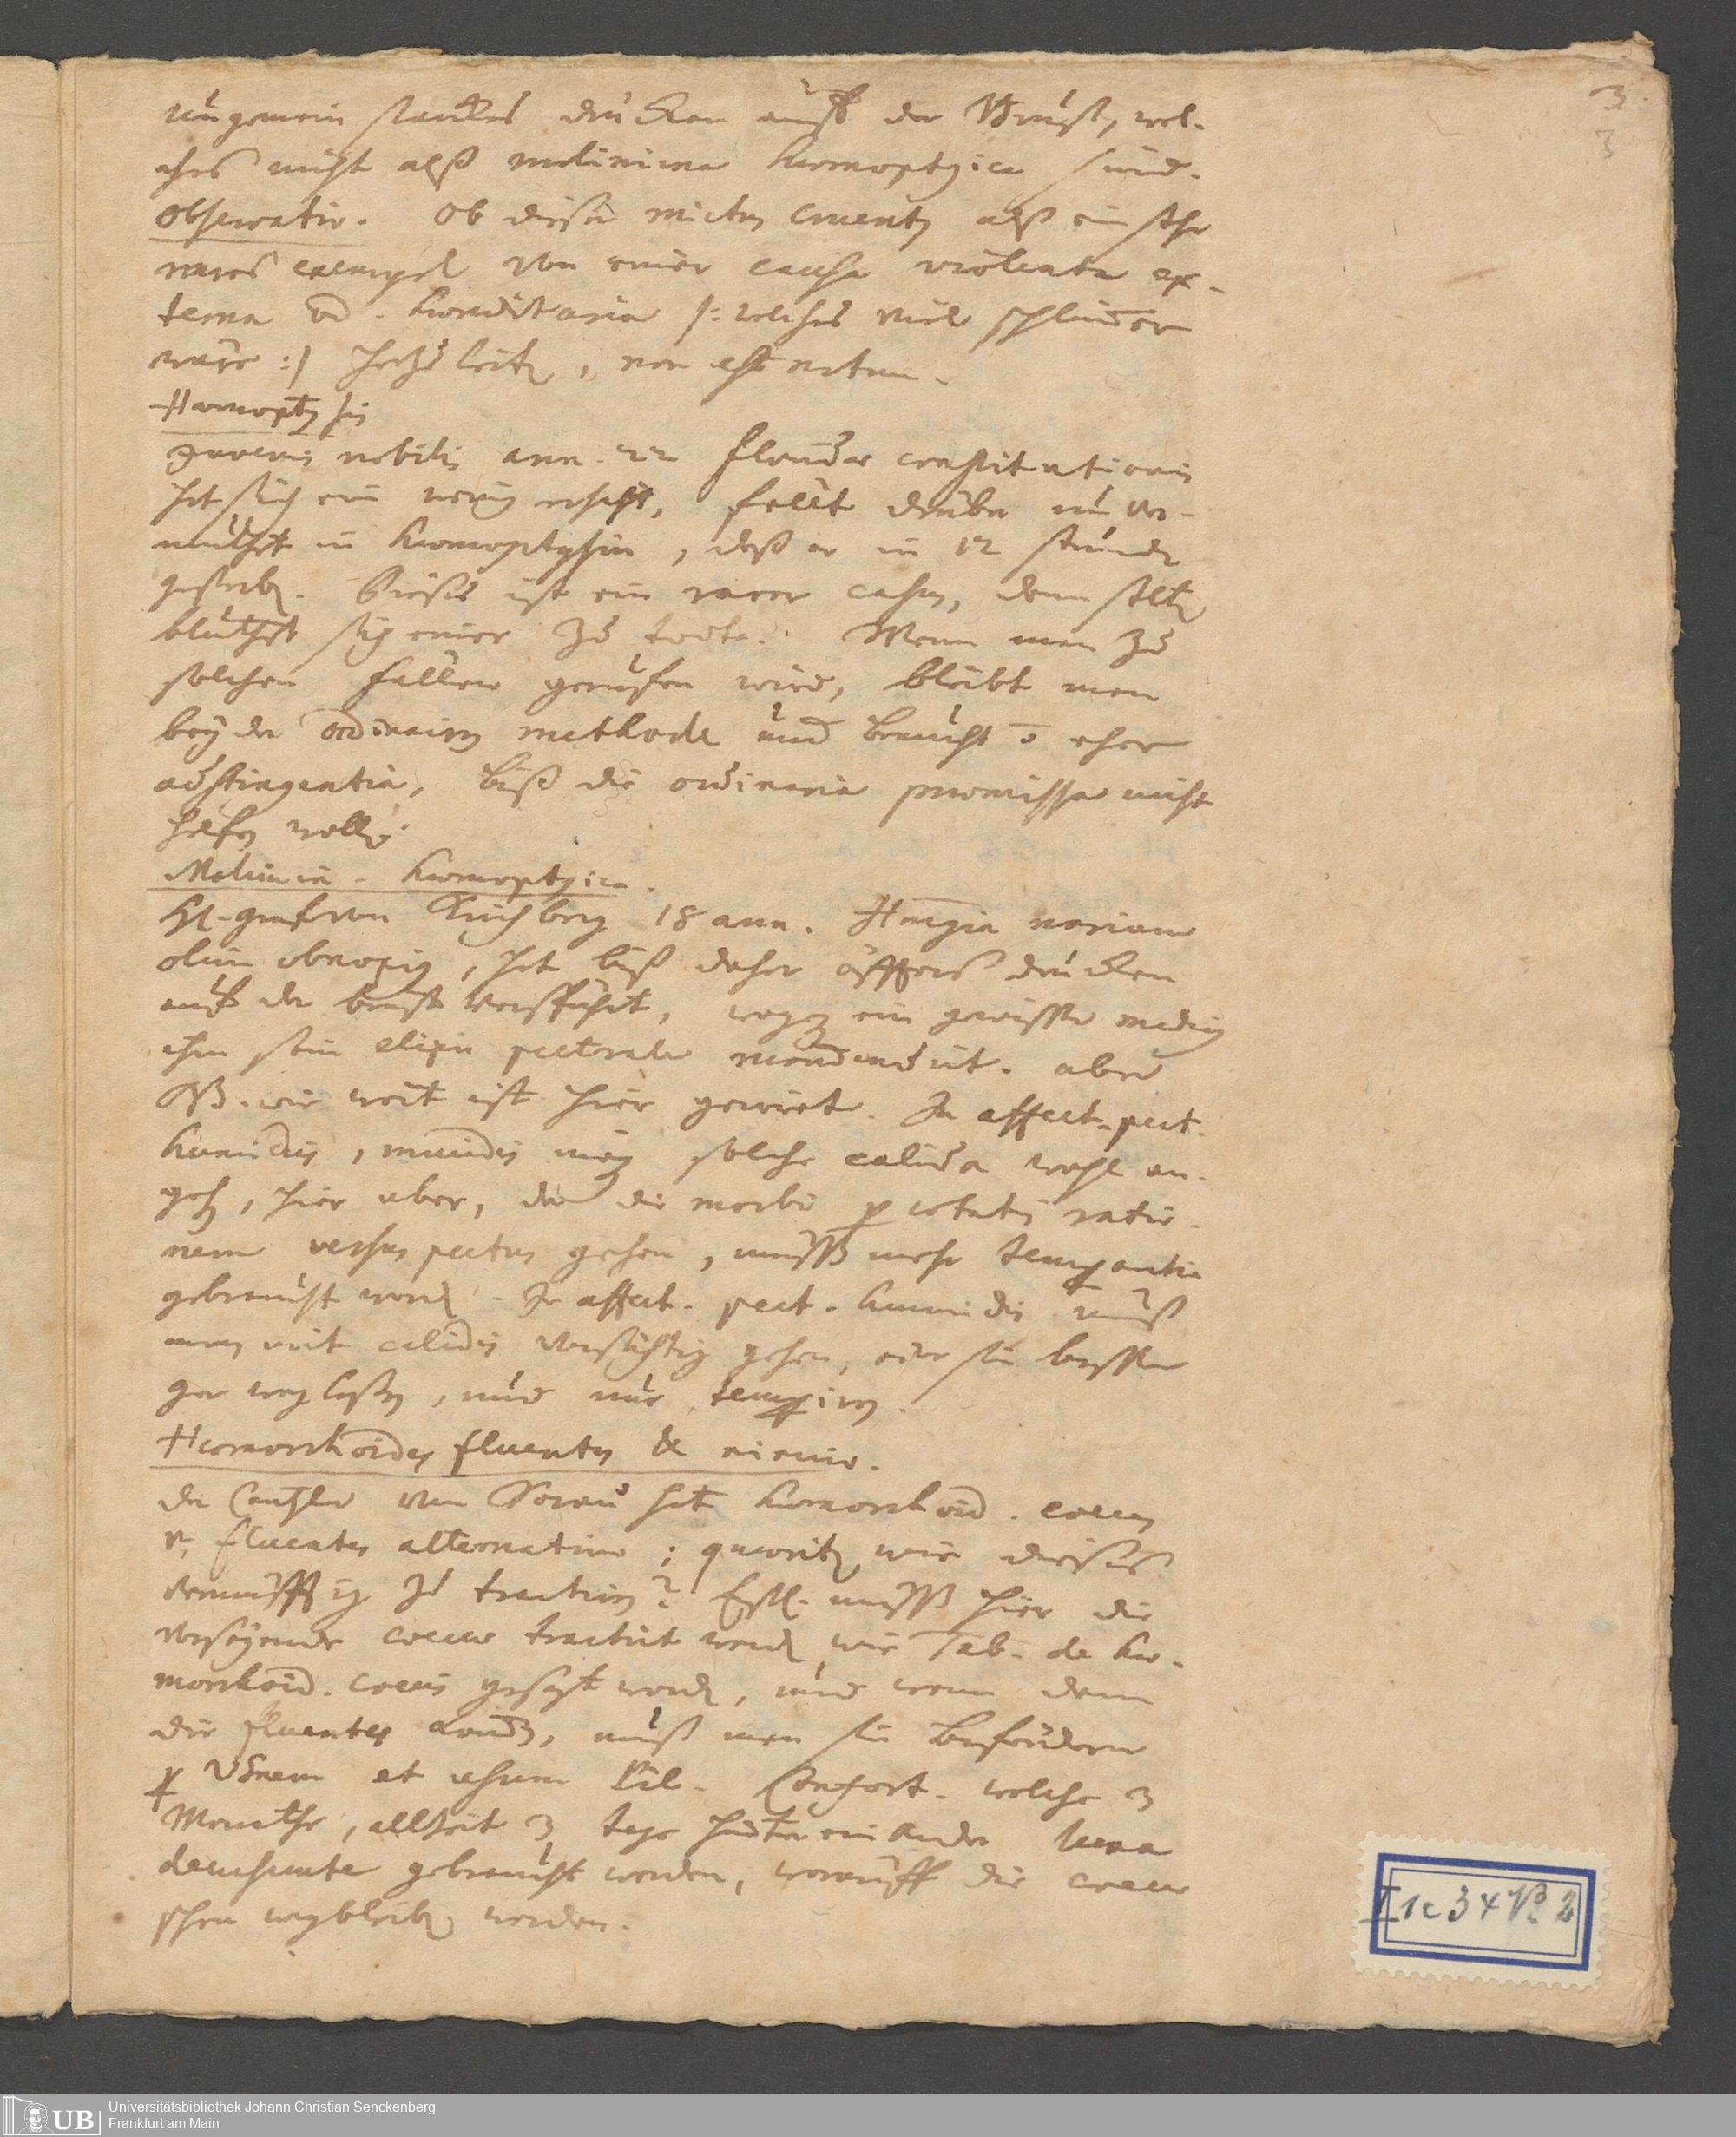 3.
3
ungemein starckes drücken auff der Brust, wel-
ches nicht alß molimina hæmoptyica sind.
Observatio. Ob dieser mictus cruentus alß ein sehr
rares exempel von einer causa violenta ex-
terna od. hæreditaria /: welches viel schlimmer
wäre :/ hergeleitet, non est notum.
Hæmoptysis
Juvenis nobilis ann. 22 floridæ constitutionis
hat sich ein wenig erhitzt, fället drüber unver-
muthet in hæmoptysin, daß er in 12 stunden
gestorben. Dieses ist ein rarer casus, denn selten
bluthet sich einer zu todte. Wenn man zu
solchen fällen geruffen wird, bleibt man
bey der ordinairen methode und braucht nicht eher
adstringentia, biß die ordinaria præmissa nicht
helfen wollen.
Molimina hæmoptyica.
H. graf von Kirchberg 18 ann. Hæmorrhagiæ narium
olim obnoxius, hat biß daher öffters drücken
auf der brust verspührt, wogegen ein gewisser medicus
ihm sein elixir pectorale recommendirt. aber
NB. wie weit ist hier geirret. In affect. pect.
humidis, mucidis mögen solche calida wohl an-
gehen, hier aber, da die morbi per ætatis ratio-
nem versus pectus gehen, muß mehr temperantia
gebraucht werden. In affect. pect. humidis muß
man mit calidis vorsichtig gehen, oder sie besser
gar weglaßen, und nur temperiren.
Hæmorrhoides fluentes & nimiæ.
der Cantzler von Sorau hat hæmorrhoid. cœcas
& fluentes alternative; quæritur wie dieses
vernünfftig zu tractiren? Erstl. muß hier die
vorseyende cœcæ tractirt werden, wie Tab. de hæ-
morrhoid. cœcis gesagt worden, und wenn denn
die fluentes kommen, muß man sie befördern
per VSnem et usum Pil. Confort. welche 3
Monathe, allzeit 3 tage hinter einander luna
decrescente gebraucht werden, worauff die cœcæ
schon wegbleiben werden.
I 1c 34 No 2
UB
Universitätsbibliothek Johann Christian Senckenberg
Frankfurt am Main